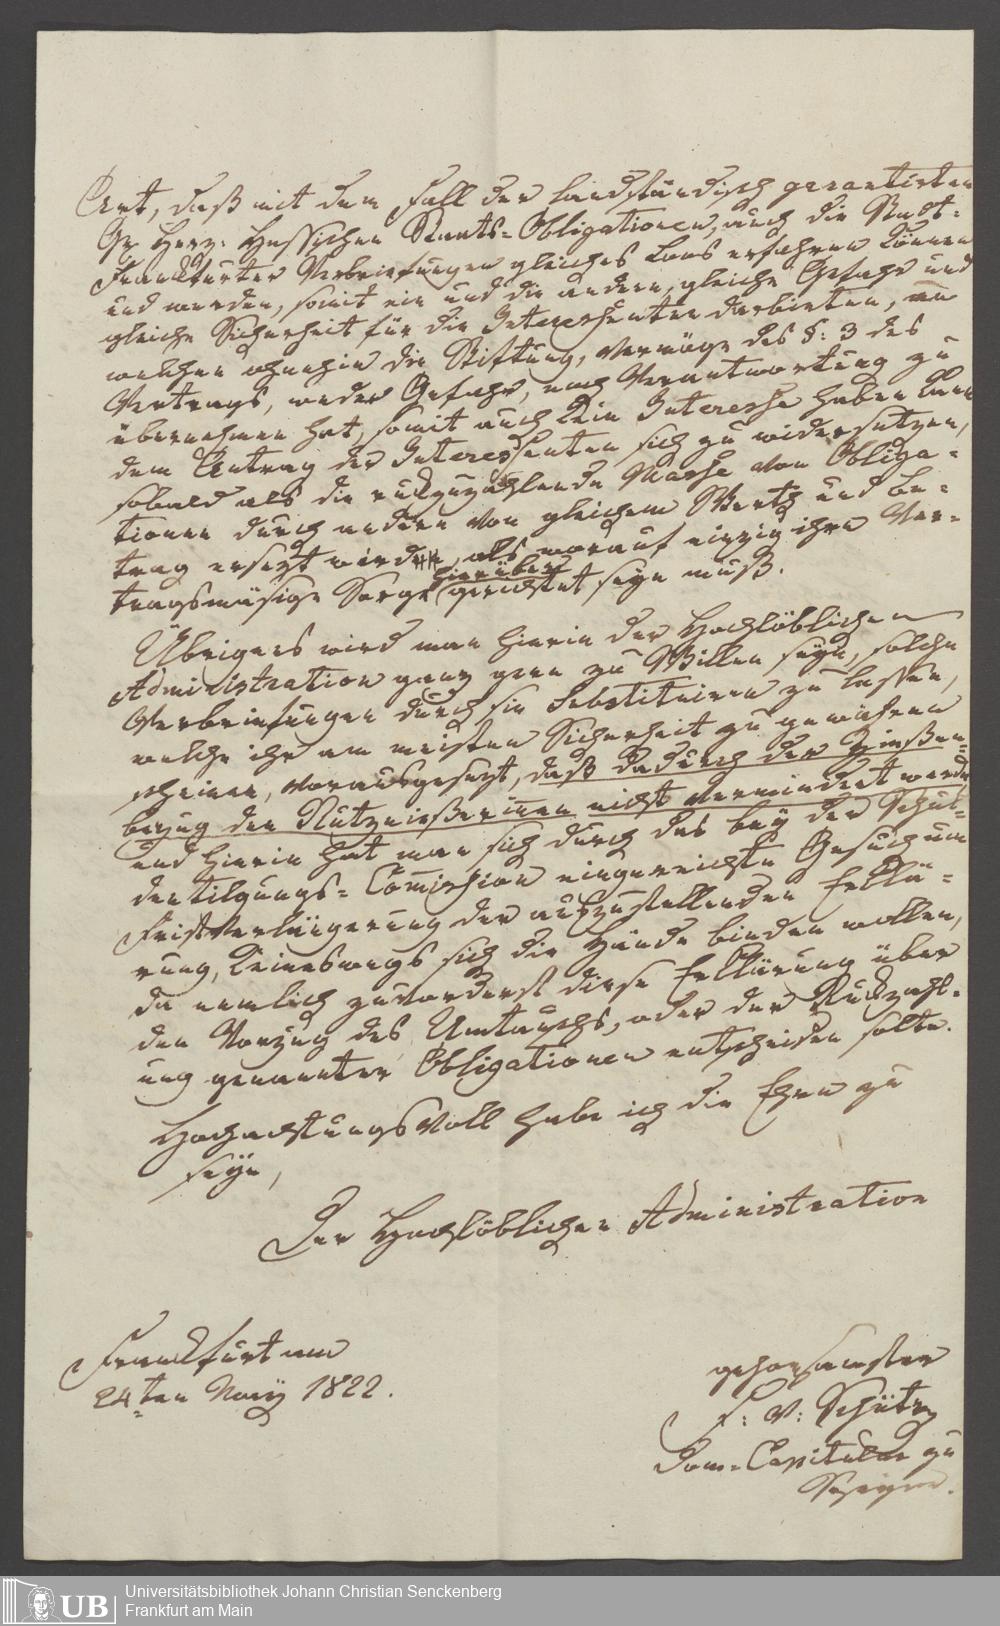 Art, daß mit dem Fall der landständisch garantirten
Gr. Herz. Hessischen Staats-Obligationen, auch die Stadt-
Frankfurter Verbriefungen gleiches Loos erfahren können
und werden, somit ein und die andern, gleiche Gefahr und
gleiche Sicherheit für die Interessenten darbieten, an
welchen ohnehin die Stiftung, vermöge des §: 3 des
Vertrags, weder Gefahr, noch Verantwortung zu
übernehmen hat, somit auch kein Interesse haben kann
dem Antrag der Interessenten sich zu widersetzen,
sobald als die rückzuzahlende Masse von Obliga-
tionen durch andere von gleichem Werth und Be-
trag ersezt werden, als worauf einzig ihre Ver-
tragsmäsige Sorge hierüber gerichtet seyn muß.
Übrigens wird man hierin der Hochlöblichen
Administration ganz gern zu Willen seyn, solche
Verbriefungen durch sie Substituiren zu lassen,
welche ihr am meisten Sicherheit zu gewähren
scheinen, vorausgesezt, daß dadurch der Zinßen-
bezug der Nutznießerinnen nicht vermindert werde
und hierin hat man sich durch das bey der Schul-
dentilgungs-Comission eingereichte Gesuch um
Fristverlängerung der auszustellenden Erklä-
rung, keineswegs sich die Hände binden wollen,
da nemlich zuvorderst diese Erklärung über
den Vorzug des Umtauschs, oder der Rückzahl-
ung genannter Obligationen entscheiden solte.
Hochachtungsvoll habe ich die Ehre zu
seyn,
Der Hochlöblichen Administration
Frankfurt am
24ten May 1822.
gehorsamster
F: v: Schütz
Dom-Capitular zu
Speyer.
Universitätsbibliothek Johann Christian Senckenberg
Frankfurt am Main
UB